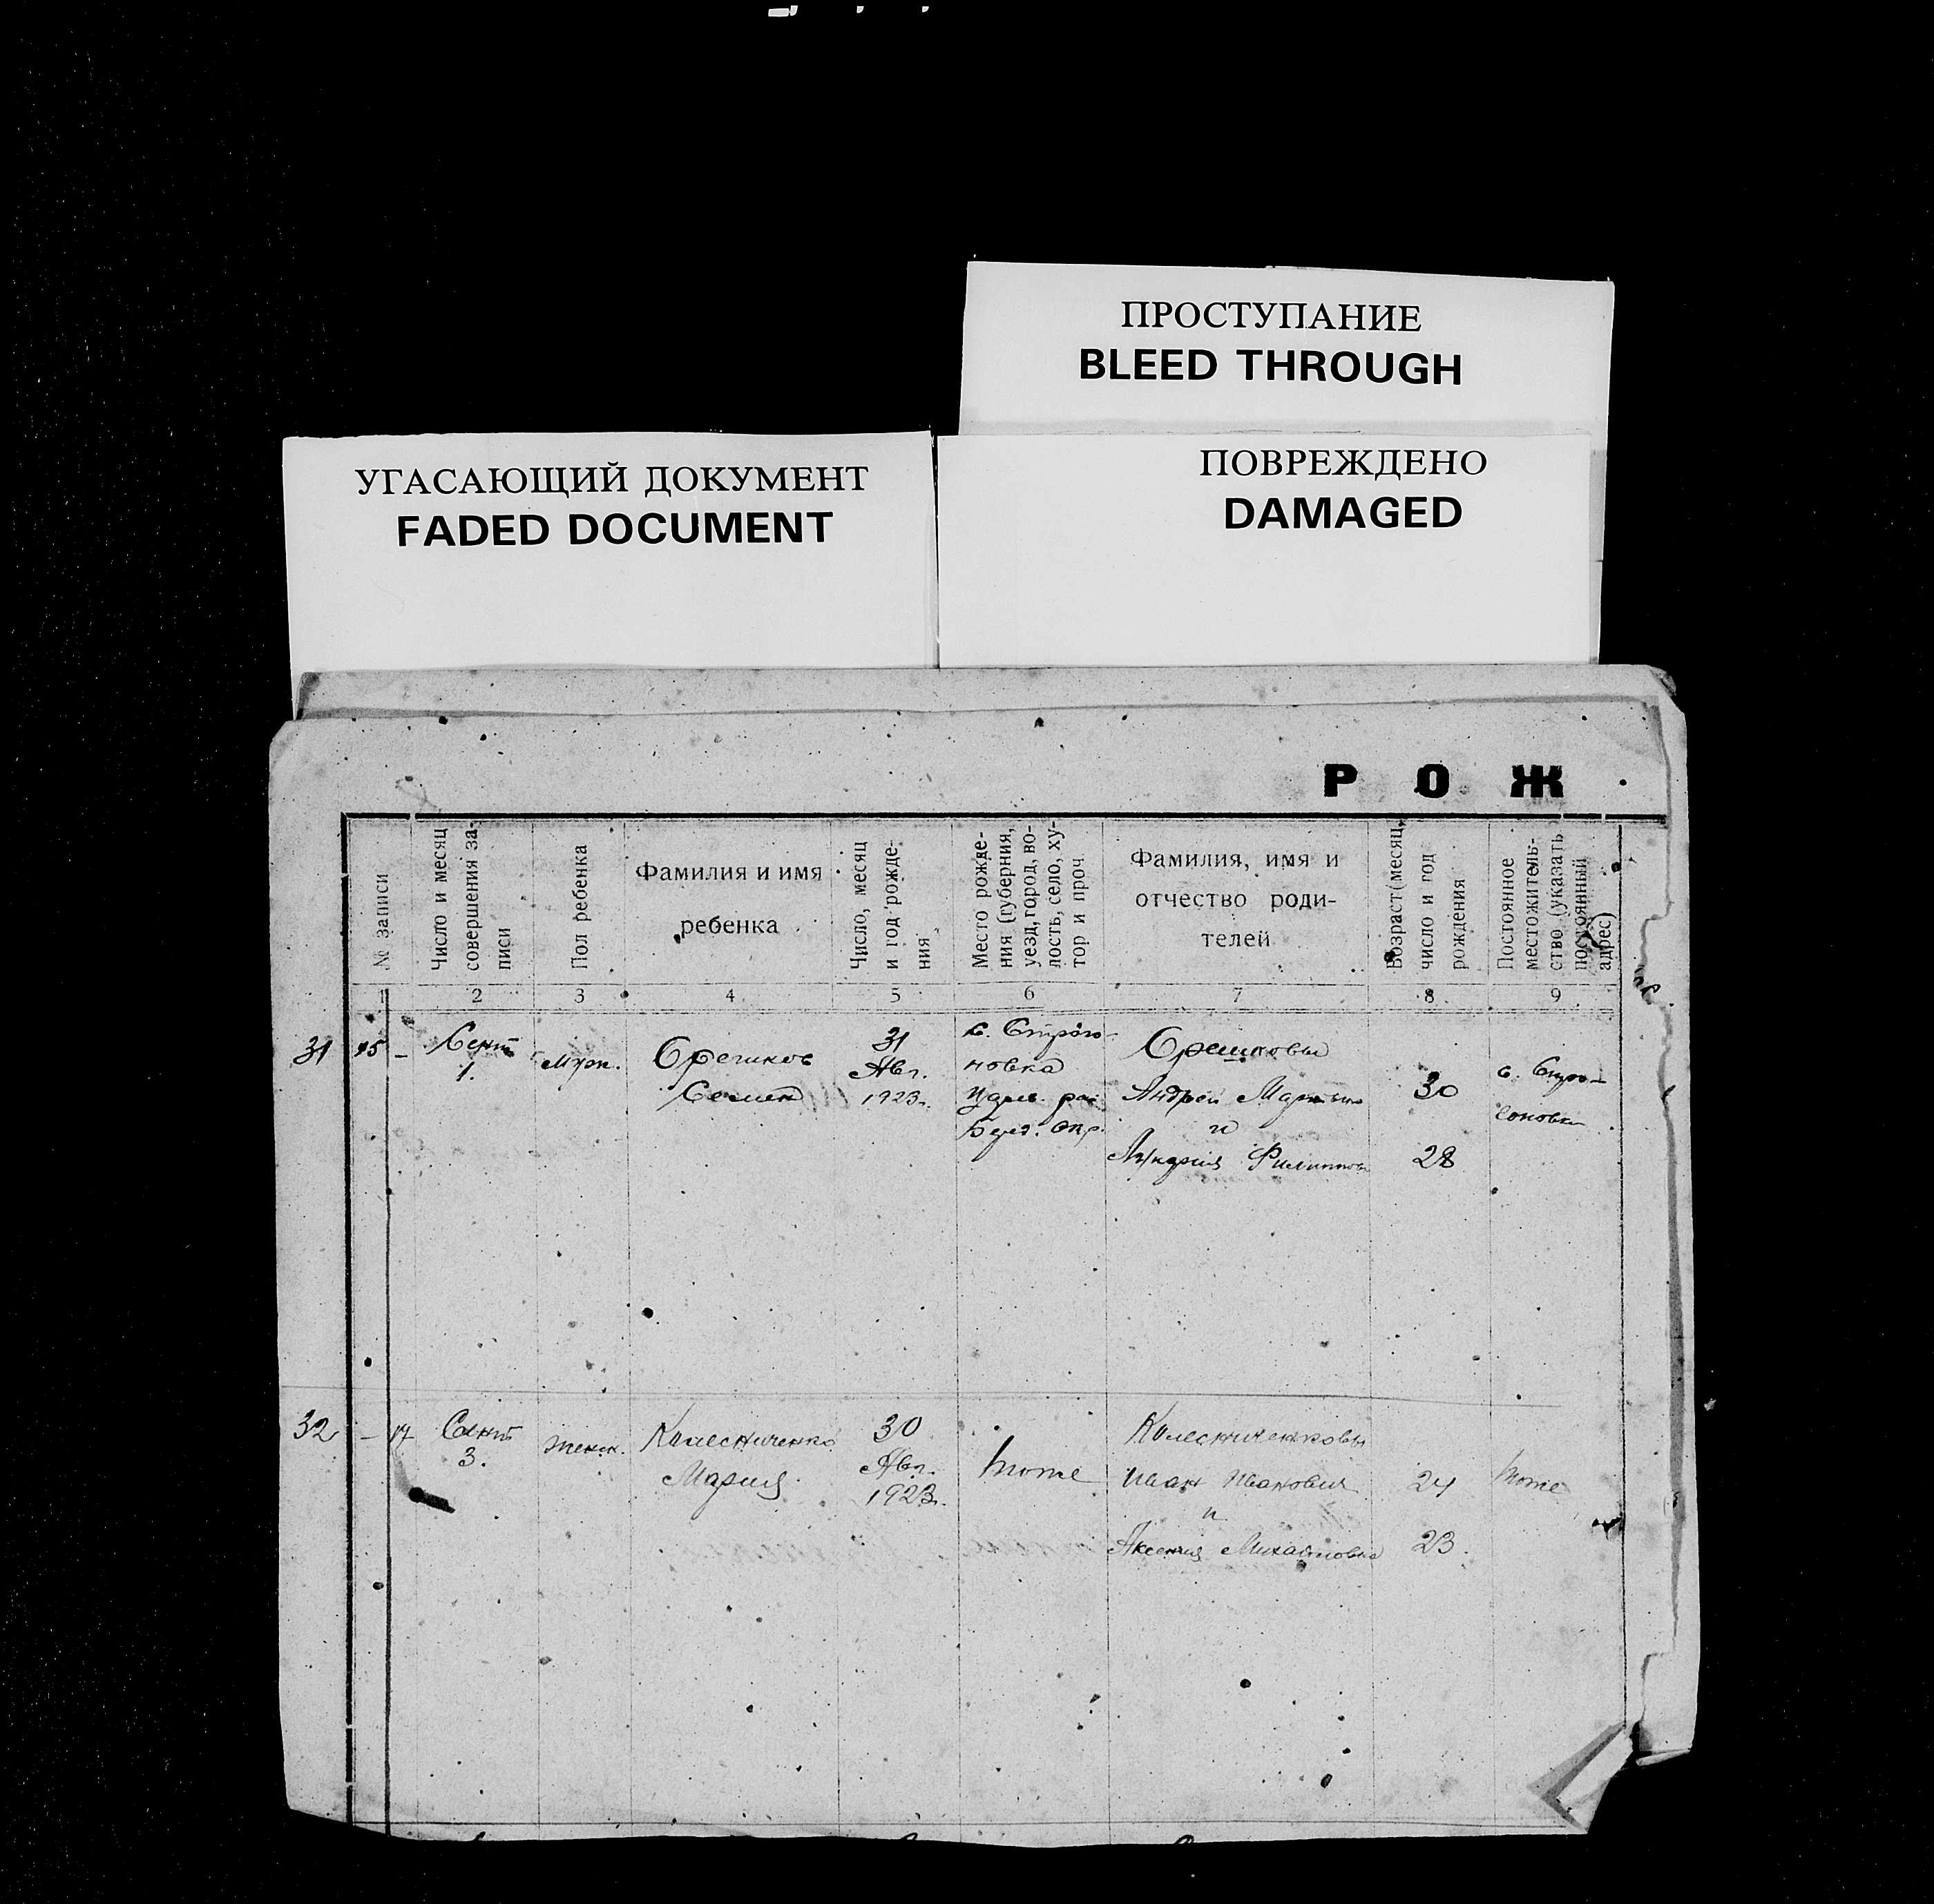 ПРОСТУПАНИЕ
BLEED THROUGH
УГАСАЮЩИЙ ДОКУМЕНТ
FADED DOCUMENT
ПОВРЕЖДЕНО
DAMAGED
Р О Ж
№ записи
Число и месяц
совершения за-
писи
Пол ребенка
Фамилия и имя
ребенка
Число, месяц
и год рожде-
ния
Место рожде-
ния (губерния,
уезд, город, во-
лость, село, ху-
тор и проч
Фамилия, имя и
отчество роди-
телей
Возраст (месяц,
число и год
рождения
Постоянное
местожитель-
ство (указать
постоянный
адрес)
1 2 3 4 5 6 7 8 9
31
15 –
Сент
1.
муж.
Орешков
Семен
31
Авг.
1923г.
с. Строго-
новка
Орешковы
Андрей
и
30
28
с.
32
– 17
Сент
3.
женск.
Колесниченко
Мария
30
Авг.
1923г.
тоже
Колесниченковы
Иван Иванович
и
Аксения Михайловна
24
23.
тоже